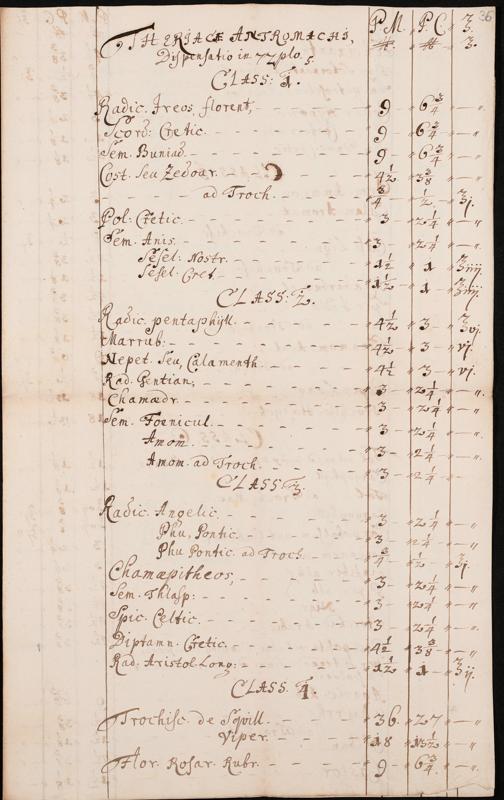 36
P.M. P.C. ℥.
℔. ℔. ℥.
THERIACÆ ANDROMACHI,
Dispensatio in 72plo.
CLASS: 1.
Radic. Ireos, florent, 9 6¾
Scord: Cretic. 9 6¾
Sem. Buniad. 9 6¾
Cost. seu Zedoar. 4½ 3⅜
ad Troch. ¾ ½ ℥j.
Pol: Cretic. 3 2¼
Sem. Anis. 3 2¼
Sesel: Nostr. 1½ 1 ℥iij.
Sesel. Cret. 1½ 1 ℥iij.
CLASS. 2.
Radic. pentaphyll. 4½ 3 ℥vj.
Marrub: 4½ 3 vj.
Nepet. seu, Calamenth. 4½ 3 vj.
Rad. Gentian; 3 2¼
Chamædr. 3 2¼
Sem. Foenicul. 3 2¼
Amom. 3 2¼
Amom. ad Troch. 3 2¼
CLASS. 3.
Radic. Angelic. 3 2¼
Phu, Pontic. 3 2¼
Phu Pontic. ad Troch. ¾ ½ ℥j.
Chamæpitheos, 3 2¼
Sem. Thlasp: 3 2¼
Spic. Celtic. 3 2¼
Diptamn. Cretic. 4½ 3⅜
Rad. Aristol. Long: 1½ 1 ℥ij.
CLASS. 4.
Trochisc. de Sqvill. 36 27
Viper. 18 13½
Flor. Rosar. Rubr. 9 6¾